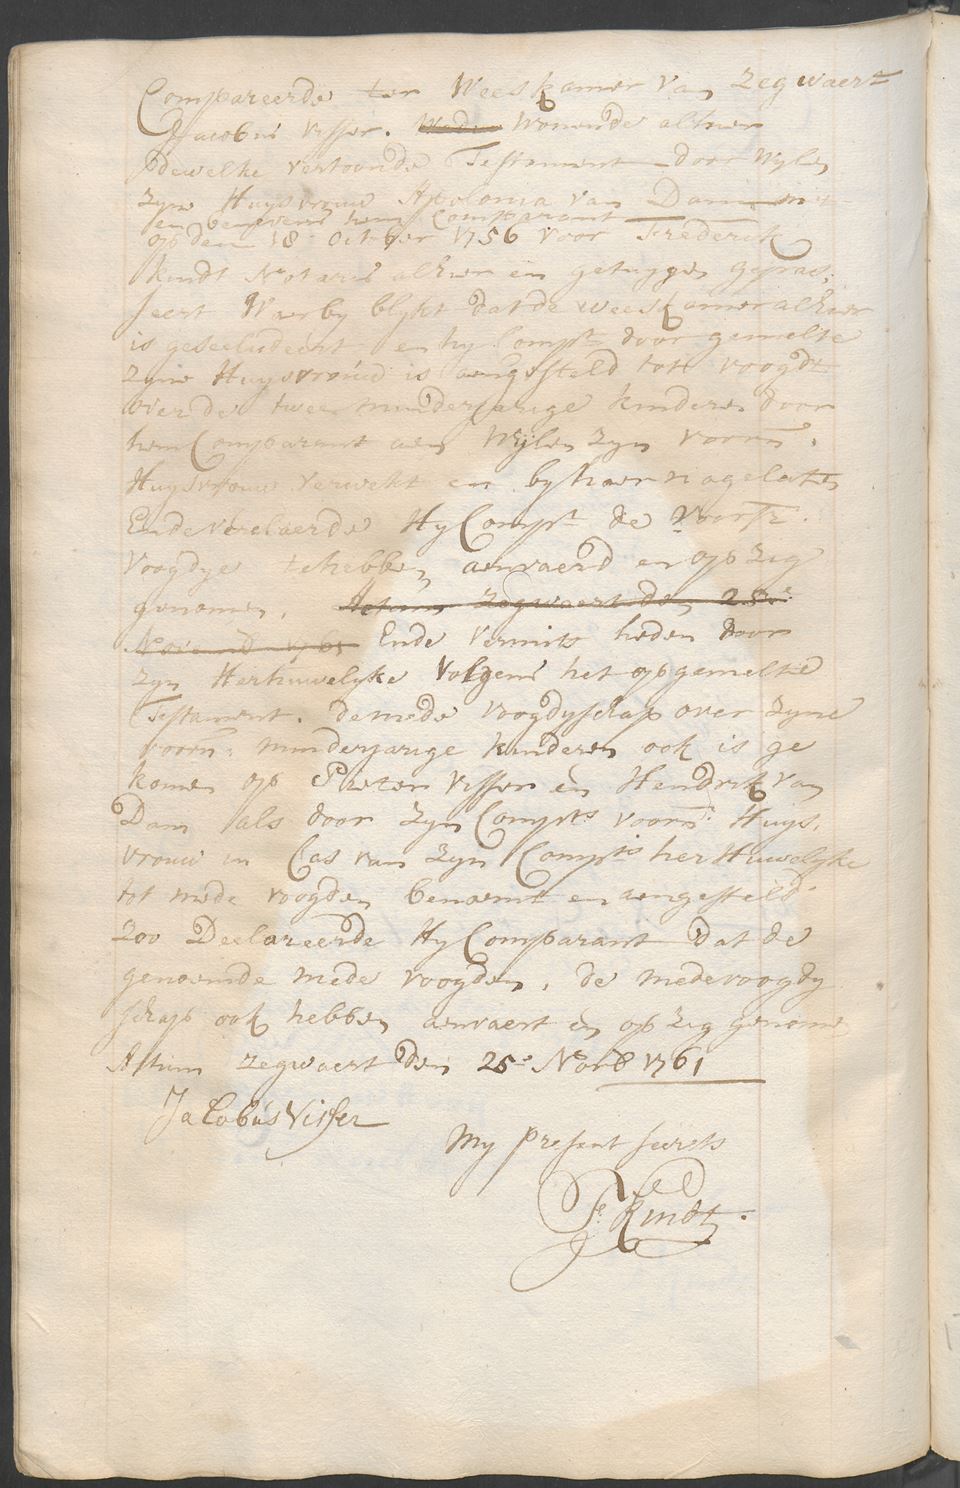 Compareerde ter Weeskamer van Zegwaert
Jacobus Visser. Wonende alhier
dewelke vertoonde Testament door wylen
zyne Huysvrouw Apolonia van Dam
en benevens hem Comparant
op den 18 October 1756 voor Frederik
kindt Notaris alhier en getuygen gepas,
seert Waerby blykt dat de weeskamer alhier
is geseeludeert en hy Compt door gemelte
zyne Huysvrouw is aengesteld tot voogdt
over de twee minderjarige kinderen door
hem Comparant aen Wijlen zyn voorn.
Huysvrouw verwekt en by haer nagelaten
Ende verclaerde Hy Compt de voorsz.
voogdye te hebben aenvaerd en op zig
genomen, Actum Zegwaert den 25e
Novemb 1761 Ende vermits heden door
zyn Herhuwelyke volgens het opgemelte
Testament. de mede voogdyschap over zyne
voorn: minderjarige kinderen ook is ge
komen op Pieter Visser en Hendrik van
Dam als door zyn Compts voorn: Huys,
vrouw in Cas van zyn Compts her Huwelyke
tot mede voogden benoemt en aengesteld
Zoo Declareerde Hy Comparant dat de
genoemde mede voogden, de medevoogdy
schap ook hebben aenvaert en op zig genome
Actum Zegwaert den 25e Novb 1761
Jacobus Visser
My Present secrets
Fk Kindt.